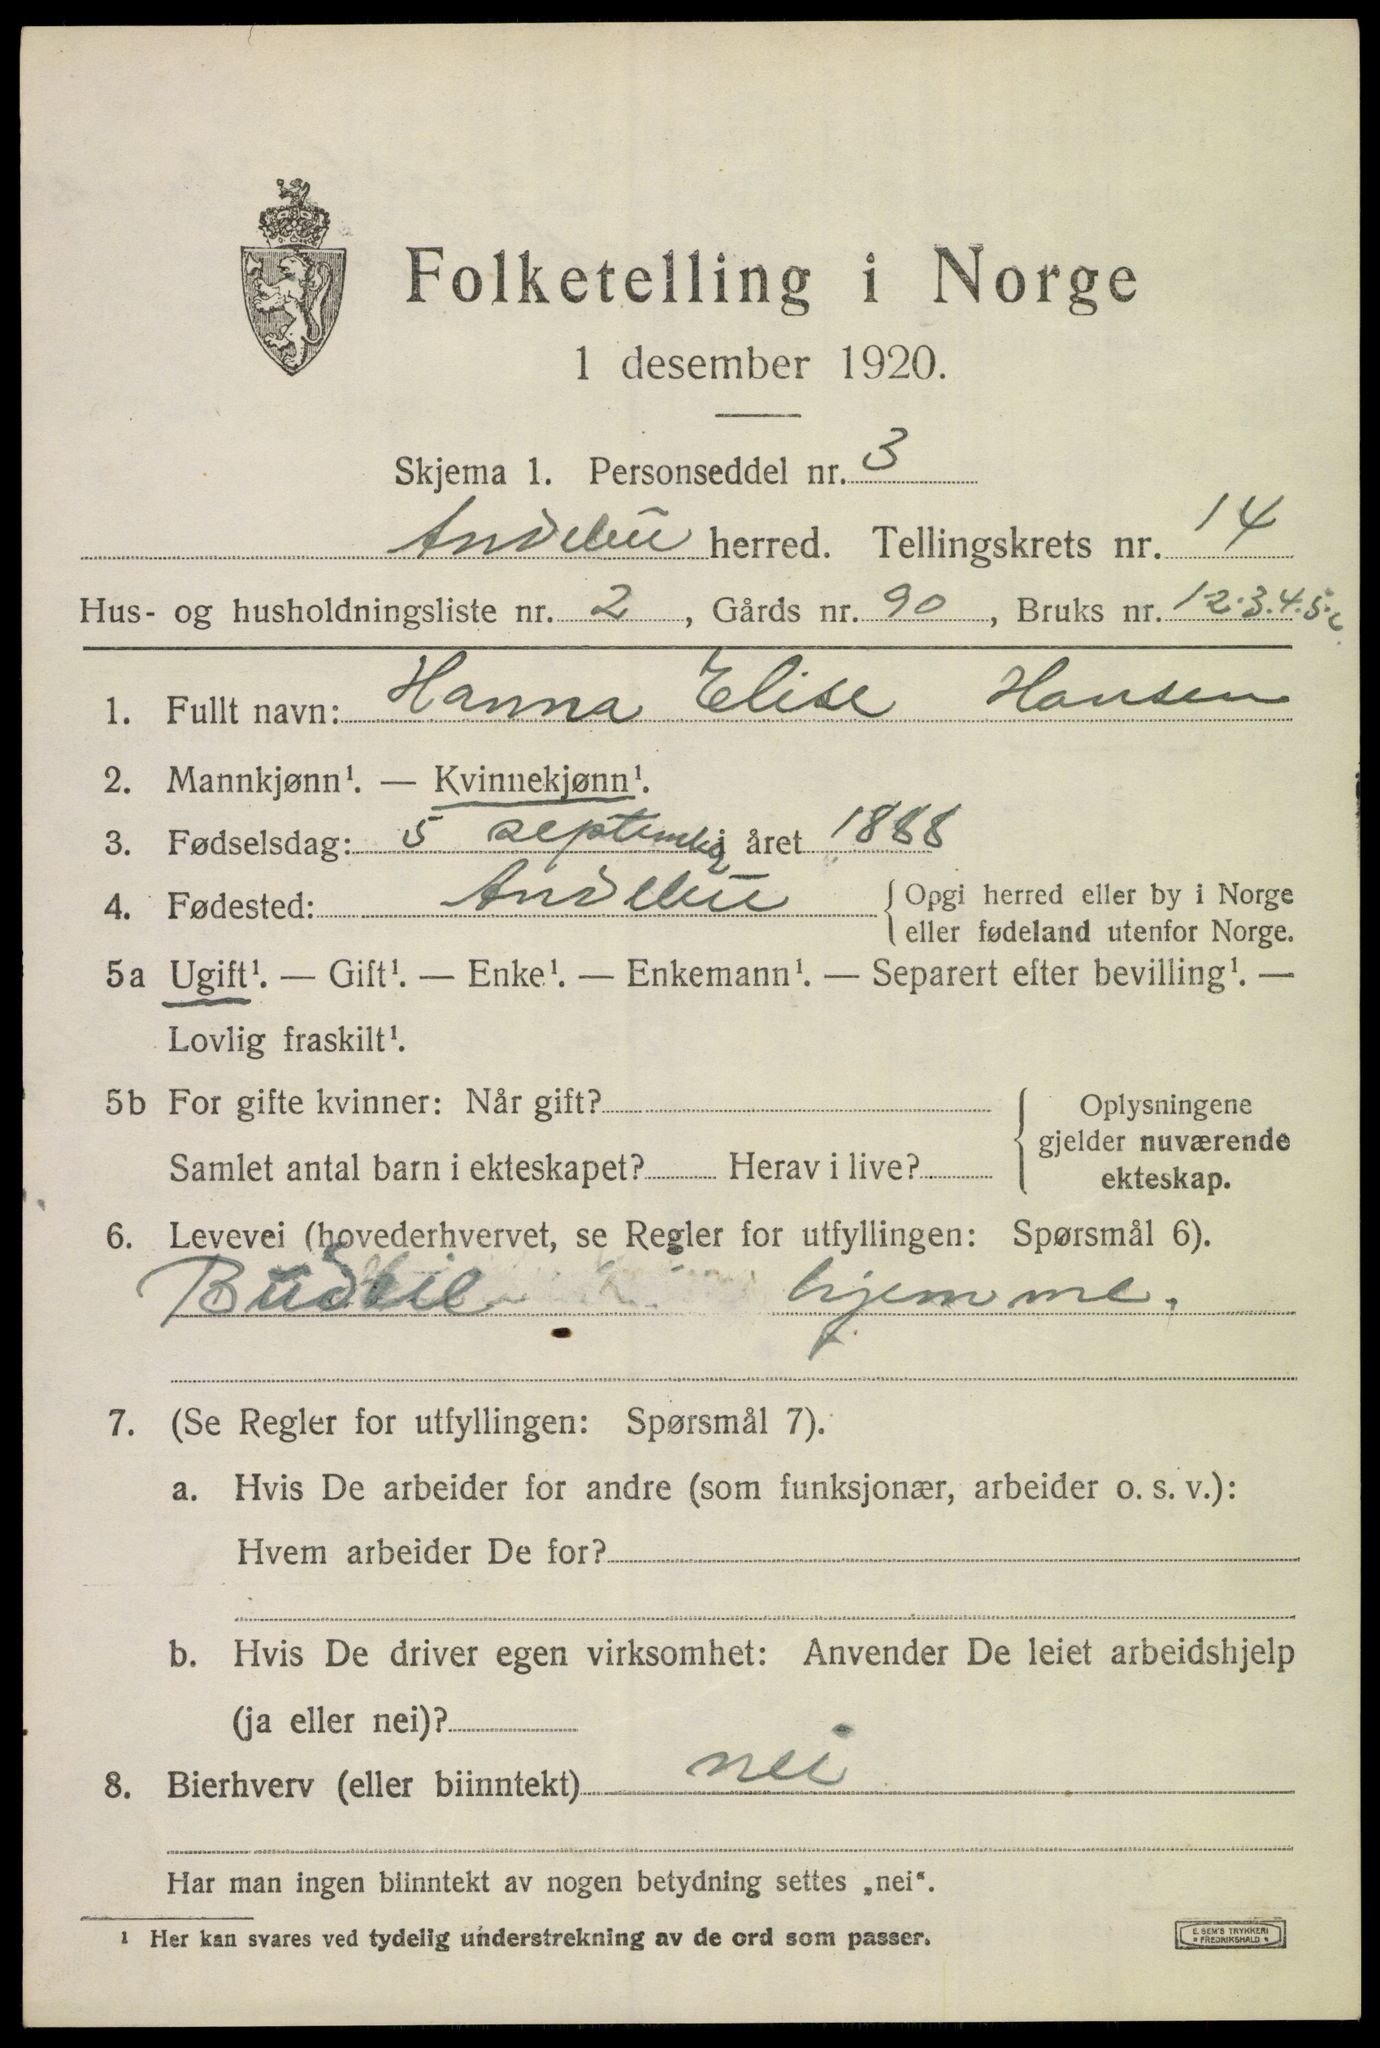 Folketelling i Norge
1 desember 1920.
Skjema 1. Personseddel nr. 3
Andebu herred. Tellingskrets nr. 14
Hus- og husholdningsliste nr. 2, Gårds nr. 90, Bruks nr. 1-2.3.4.5.
1. Fullt navn: Hanna Elise Hansen
2. Mannkjønn¹. — Kvinnekjønn¹.
3. Fødselsdag: 5 september i året 1888
4. Fødested: Andebu { Opgi herred eller by i Norge
eller fødeland utenfor Norge.
5a Ugift¹. — Gift¹. — Enke¹. — Enkemann¹. — Separert efter bevilling¹. —
Lovlig fraskilt¹.
5b For gifte kvinner: Når gift? { Oplysningene
gjelder nuværende
Samlet antal barn i ekteskapet? Herav i live?
ekteskap.
6. Levevei (hovederhvervet, se Regler for utfyllingen: Spørsmål 6).
Budeie hjemme.
7. (Se Regler for utfyllingen: Spørsmål 7).
a. Hvis De arbeider for andre (som funksjonær, arbeider o. s. v.):
Hvem arbeider De for?
b. Hvis De driver egen virksomhet: Anvender De leiet arbeidshjelp
(ja eller nei)?
8. Bierhverv (eller biinntekt) nei
Har man ingen biinntekt av nogen betydning settes „nei“.
¹ Her kan svares ved tydelig understrekning av de ord som passer.
E. SEM'S TRYKKERI
FREDRIKSHALD